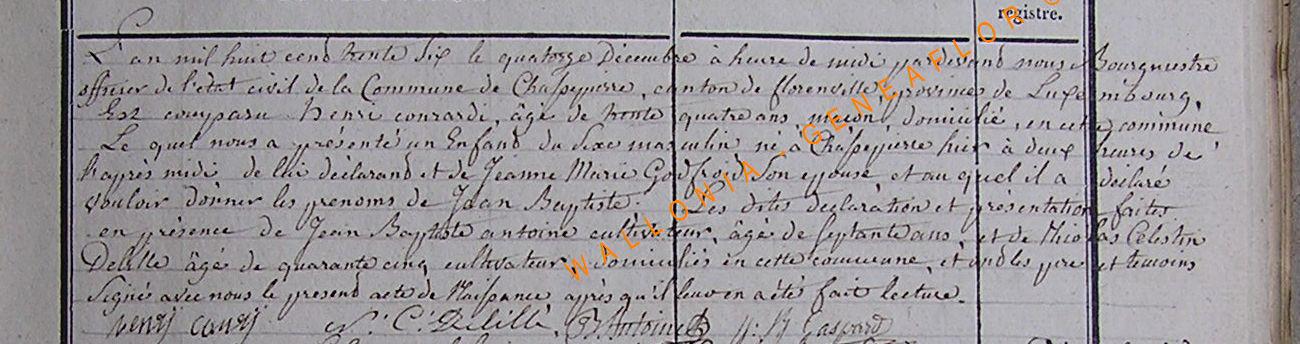 registre.
L'an mil huit cend trente six le quatorze Décembre à heure de midi pardevand nous Bourguestre
officier de l'état civil de la Commune de Chassepierre, canton de florenville, province de Luxembourg,
Est comparu henri conrardi, âgé de trente quatre ans, macon, domicilié, en cette commune
Le quel nous a présenté un Enfand du Sexe masculin né à Chassepierre hier à deux heures de
l'après midi de lui déclarand et de Jeanne Marie Godfroid Son epouse et au quel il a déclaré
vouloir donner les prenoms de Jean Baptiste. Les dites declaration et présentation faites
en présence de Jean Baptiste antoine cultivateur, âgé de septante ans, et de Nicolas Célestin
Delille âgé de quarante cinq, cultivateur, domiciliés en cette commune, et ond les pre et temoins
Signé avec nous le présend acte de Naissance après qu'il leur en a été fait lecture.
henrj N: C: Delille, JB Antoine J: B Gaspard
WALLONIA - GENEAFLOR